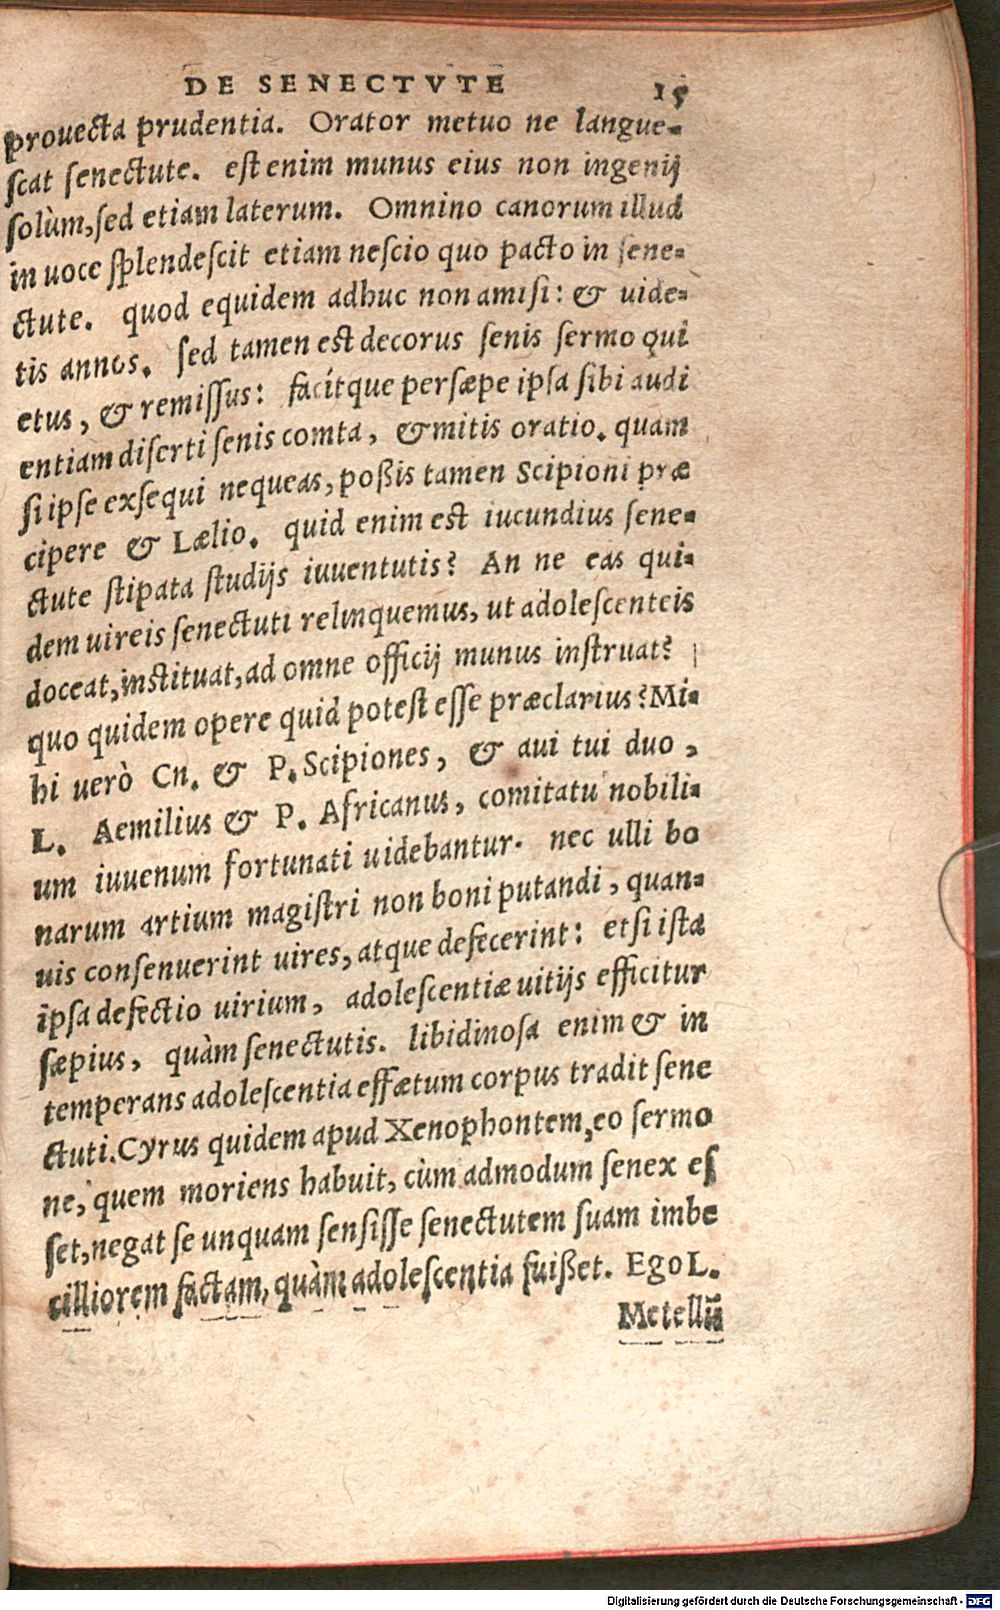 DE SENECTVTE 15
prouecta prudentia. Orator metuo ne langue-
scat senectute. est enim munus eius non ingenij
solùm, sed etiam laterum. Omnino canorum illud
in uoce splendescit etiam nescio quo pacto in sene-
ctute. quod equidem adhuc non amisi: & uide-
tis annos. sed tamen est decorus senis sermo qui
etus, & remissus: facítque persæpe ipsa sibi audi
entiam diserti senis comta, & mitis oratio. quam
si ipse exsequi nequeas, poßis tamen Scipioni præ
cipere & Lælio. quid enim est iucundius sene-
ctute stipata studijs iuuentutis? An ne eas qui-
dem uireis senectuti relinquemus, ut adolescenteis
doceat, instituat, ad omne officij munus instruat?
quo quidem opere quid potest esse præclarius? Mi-
hi uerò Cn. & P. Scipiones, & aui tui duo,
L. Aemilius & P. Africanus, comitatu nobili-
um iuuenum fortunati uidebantur. nec ulli bo
narum artium magistri non boni putandi, quan-
uis consenuerint uires, atque defecerint: etsi ista
ipsa defectio uirium, adolescentiæ uitijs efficitur
sæpius, quàm senectutis. libidinosa enim & in
temperans adolescentia effœtum corpus tradit sene
ctuti. Cyrus quidem apud Xenophontem, eo sermo
ne, quem moriens habuit, cùm admodum senex es
set, negat se unquam sensisse senectutem suam imbe
cilliorem factam, quàm adolescentia fuißet. Ego L.
Metellū
Digitalisierung gefördert durch die Deutsche Forschungsgemeinschaft - DFG